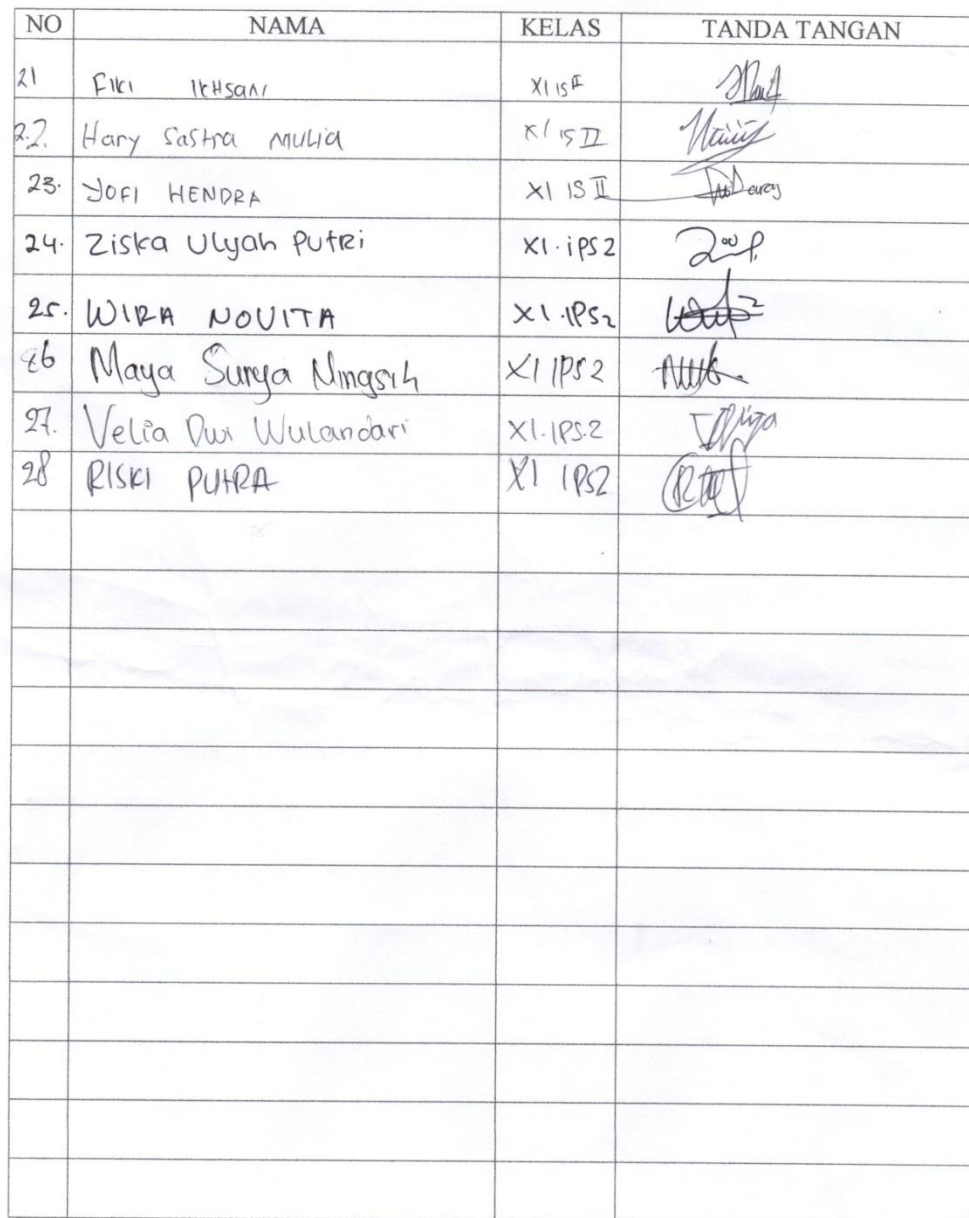 NO NAMA KELAS TANDA TANGAN
21 FIKI IKHSANI XI IS II
22. Hary Sastra MULIA XI IS II
23. YOFI HENDRA XI IS II
24. Ziska Ulyah Putri XI.iPS2
25. WIRA NOVITA XI.IPS2
26 Maya Surya Ningsih XI IPS 2
27. Velia Dwi Wulandari XI.IPS.2
28 RISKI PUTRA XI IPS2